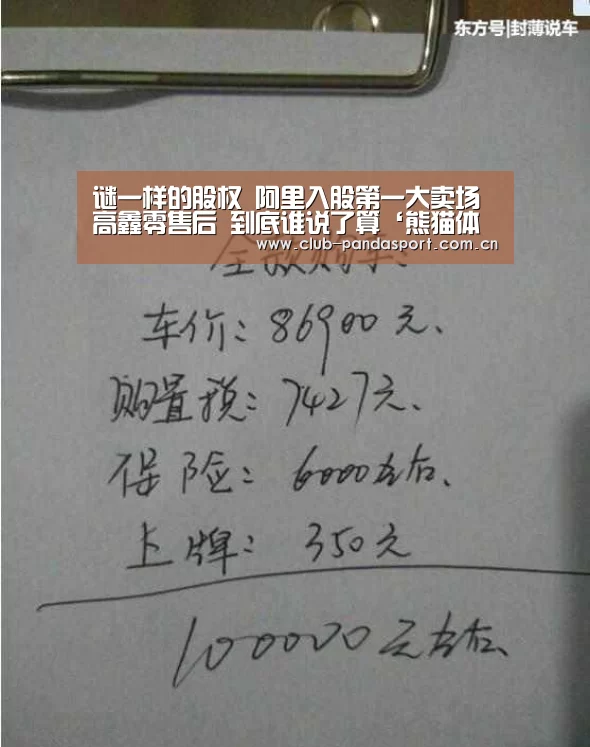 东方号|封薄说车
谜一样的股权 阿里入股第一大卖场
高鑫零售后 到底谁说了算‘熊猫体
www.club-pandasport.com.cn
全款购车:
车价: 86900元、
购置税: 7427元、
保险: 6000左右、
上牌: 350元
100000元左右、